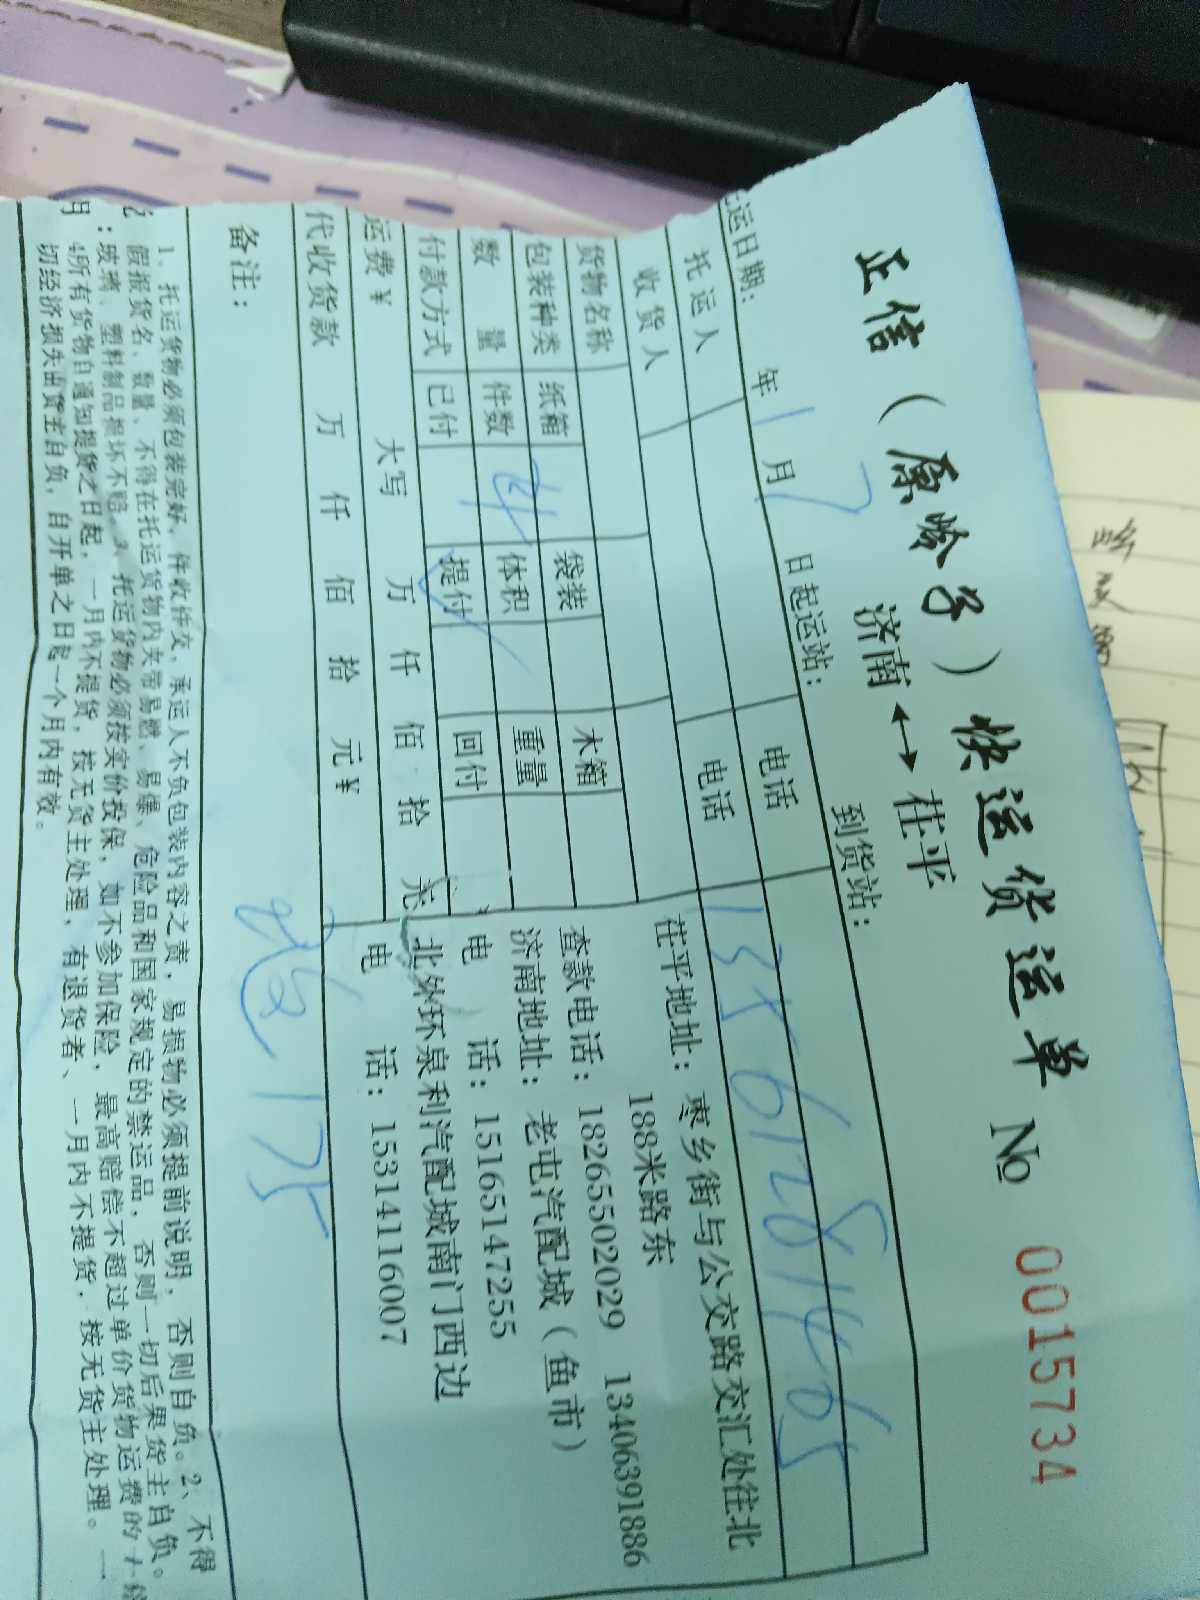 正信（原岭子）快运货运单 No 0015734
济南↔茌平
托运日期： 年 1 月 7 日 起运站： 到货站：
托运人 电话
收货人 电话 13561281465
货物名称
包装种类 纸箱 袋装 木箱
数量 件数 体积 重量
付款方式 已付 提付 ✓ 回付
运费¥ 大写 万 仟 佰 拾 元
代收货款 万 仟 佰 拾 元¥
茌平地址：枣乡街与公交路交汇处往北
188米路东
查款电话：18265502029 13406391886
济南地址：老屯汽配城（鱼市）
电 话：15165147255
北外环泉利汽配城南门西边
电 话：15314116007
备注：
1、托运货物必须包装完好，件收件交，承运人不负包装内容之责，易损物必须提前说明，否则自负。2、不得
假报货名、数量、不得在托运货物内夹带易燃、易爆、危险品和国家规定的禁运品，否则一切后果货主自负。
：玻璃、塑料制品损坏不赔 3、托运货物必须按实价投保，如不参加保险，最高赔偿不超过单价货物运费的
4所有货物自通知提货之日起，一月内不提货，按无货主处理，有退货者、一月内不提货，按无货主处理。一
切经济损失由货主自负，自开单之日起一个月内有效。